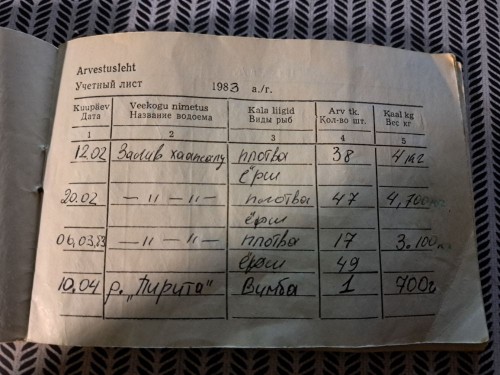 Arvestusleht
Учетный лист 1983 а./г.
Kuupäev Veekogu nimetus Kala liigid Arv tk. Kaal kg
Дата Название водоема Виды рыб Кол-во шт. Вес кг
1 2 3 4 5
12.02 Залив Хаапсалу плотва 38 4 кг
ёрш
20.02 — " — " — плотва 47 4,700кг
ёрш
06.03.83 — " — " — плотва 17 3.100кг
ёрш 49
10.04 р. „Пирита" Вимба 1 700г